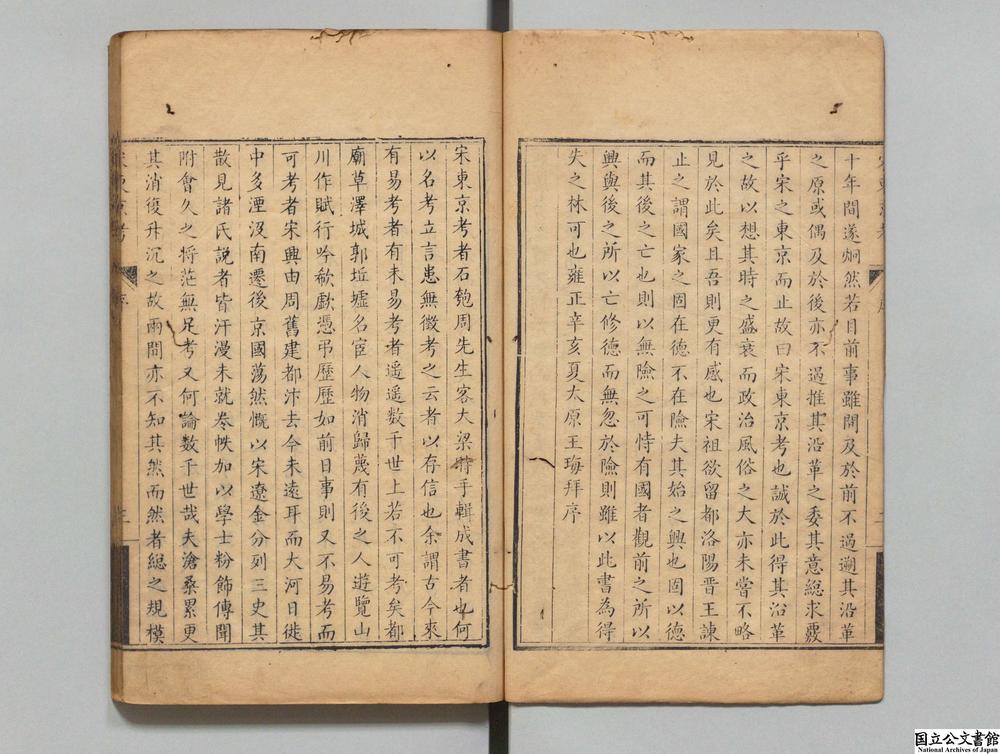 十年間遂炯然若目前事雖間及於前不過遡其沿革
之原或偶及於後亦不過推其沿革之委其意総求覈
乎宋之東京而止故曰宋東京考也誠於此得其沿革
之故以想其時之盛衰而政治風俗之大亦未嘗不略
見於此矣且吾則更有感也宋祖欲留都洛陽晋王諫
止之謂國家之固在德不在險夫其始之興也固以德
而其後之亡也則以無險之可恃有國者觀前之所以
興與後之所以亡修德而無忽於險則雖以此書為得
失之林可也雍正辛亥夏太原王珻拜序
宋東京考者石匏周先生客大梁時手輯成書者也何
以名考立言患無徵考之云者以存信也余謂古今來
有易考者有未易考者遥遥数千世上若不可考矣都
廟草澤城郭坵墟名宦人物消歸蔑有後之人遊覽山
川作賦行吟欷歔憑弔歷歷如前日事則又不易考而
可考者宋興由周舊建都汴去今未遠耳而大河日徙
中多湮没南遷後京國蕩然慨以宋遼金分列三史其
散見諸氏説者皆汗漫未就卷帙加以學士粉飾傳聞
附會久之将茫無足考又何論数千世哉夫滄桑累更
其消復升沉之故兩間亦不知其然而然者総之規模
国立公文書館
National Archives of Japan